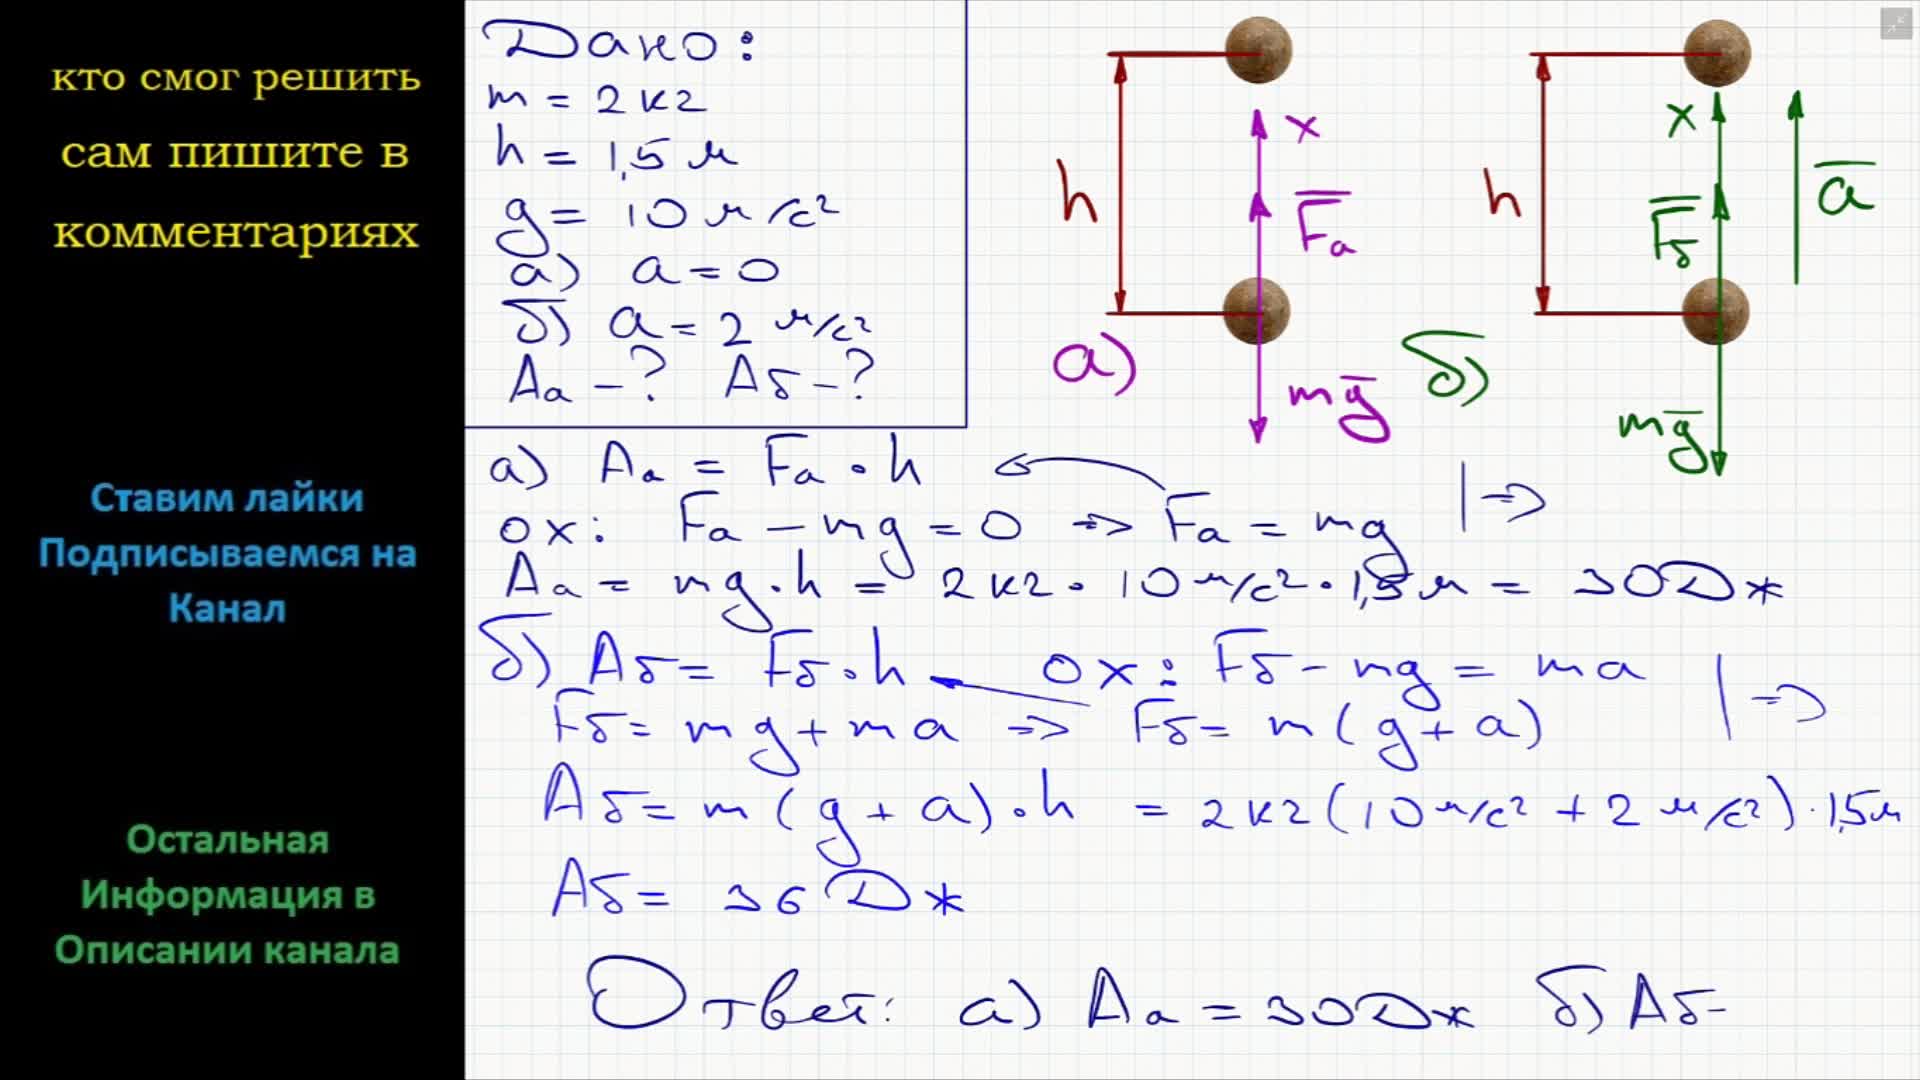 кто смог решить
сам пишите в
комментариях
Ставим лайки
Подписываемся на
Канал
Остальная
Информация в
Описании канала
Дано:
m = 2 кг
h = 1,5 м
g = 10 м/с²
а) a = 0
б) a = 2 м/с²
Aа - ? Aб - ?
h
x
F̅а
а)
mg̅
h
x
F̅б
a̅
б)
mg̅
а) Aа = Fа · h
ox: Fа - mg = 0 => Fа = mg | =>
Aа = mg · h = 2 кг · 10 м/с² · 1,5 м = 30 Дж
б) Aб = Fб · h ox: Fб - mg = ma | =>
Fб = mg + ma => Fб = m(g + a)
Aб = m(g + a) · h = 2 кг(10 м/с² + 2 м/с²) · 1,5 м
Aб = 36 Дж
Ответ: а) Aа = 30 Дж б) Aб =